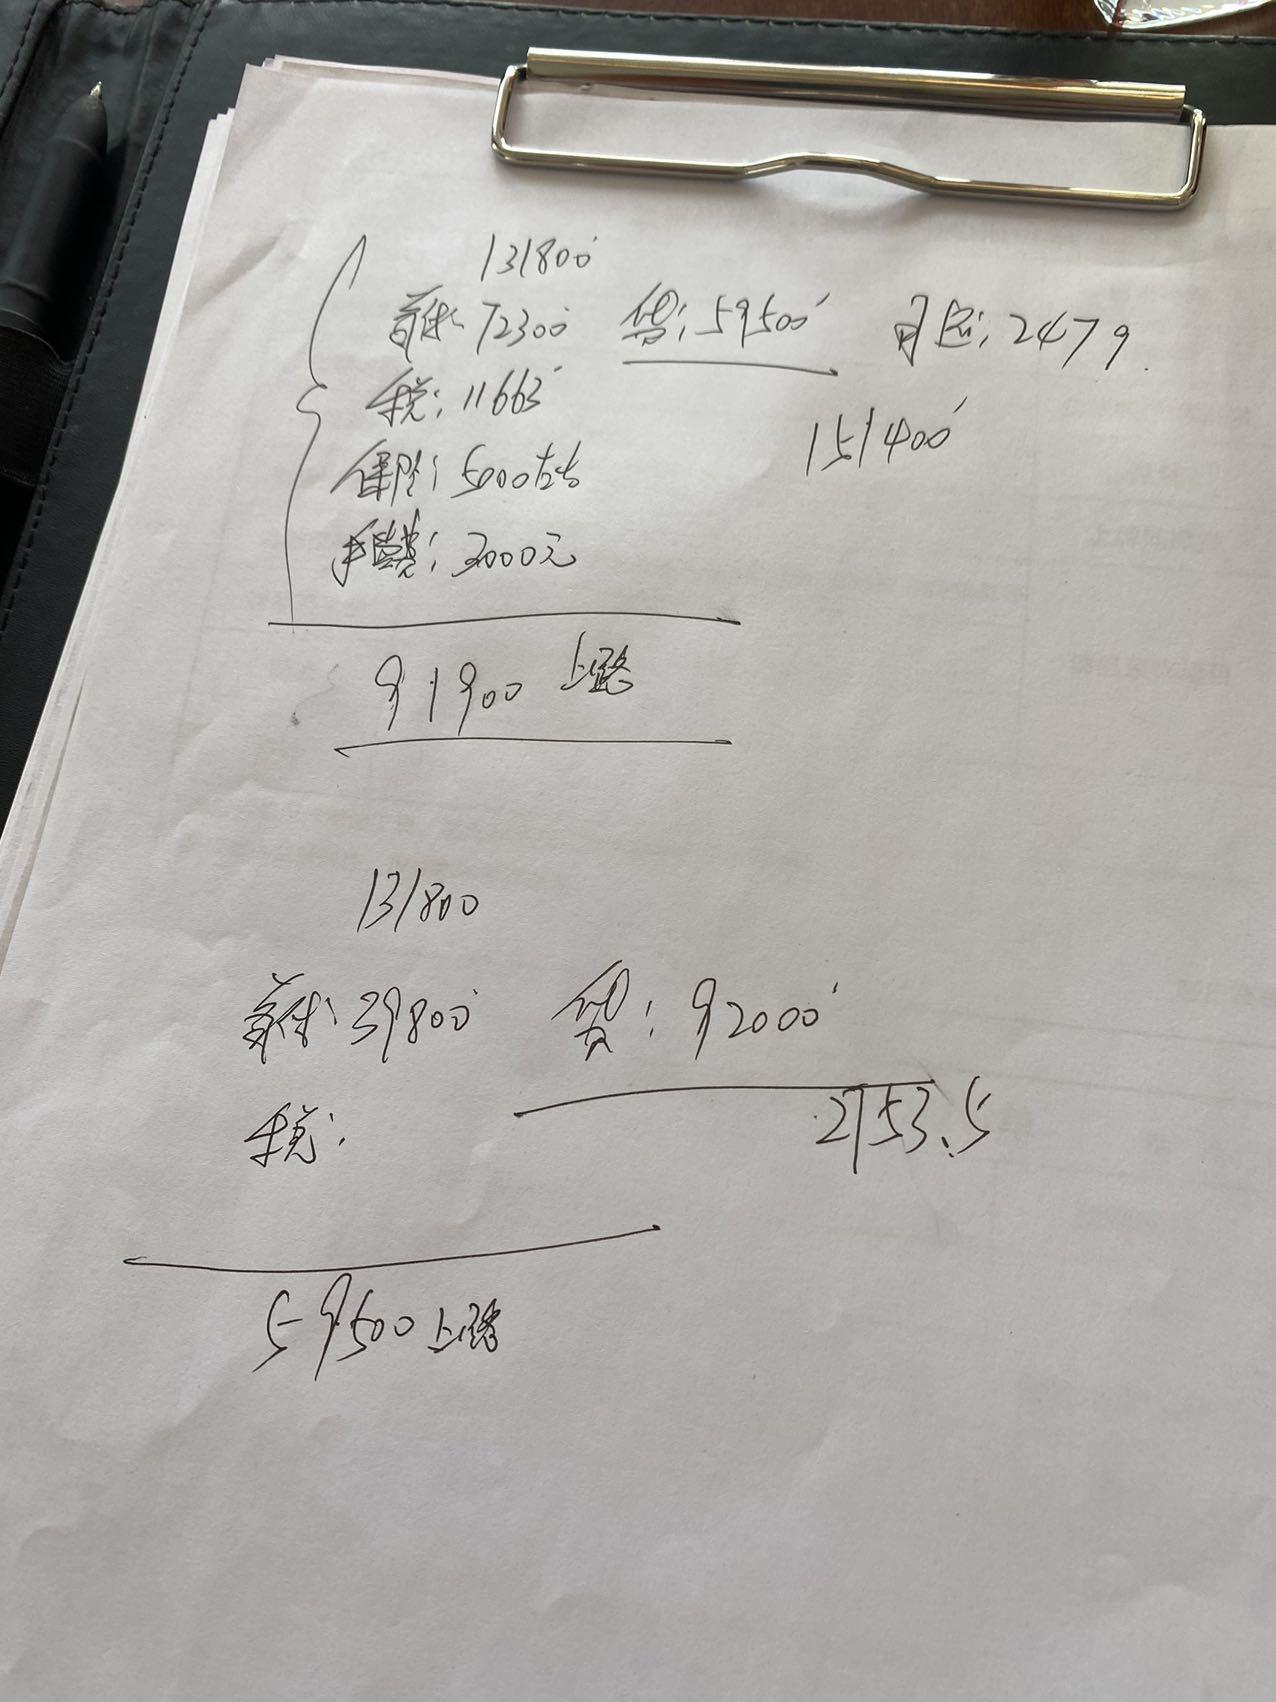 131800
首付: 72300 贷: 59500 月还: 2479
税: 11663
151400
保险: 5000左右
手续费: 3000元
91900 上路
131800
首付: 39800 贷: 92000
2753.5
税:
59500 上路